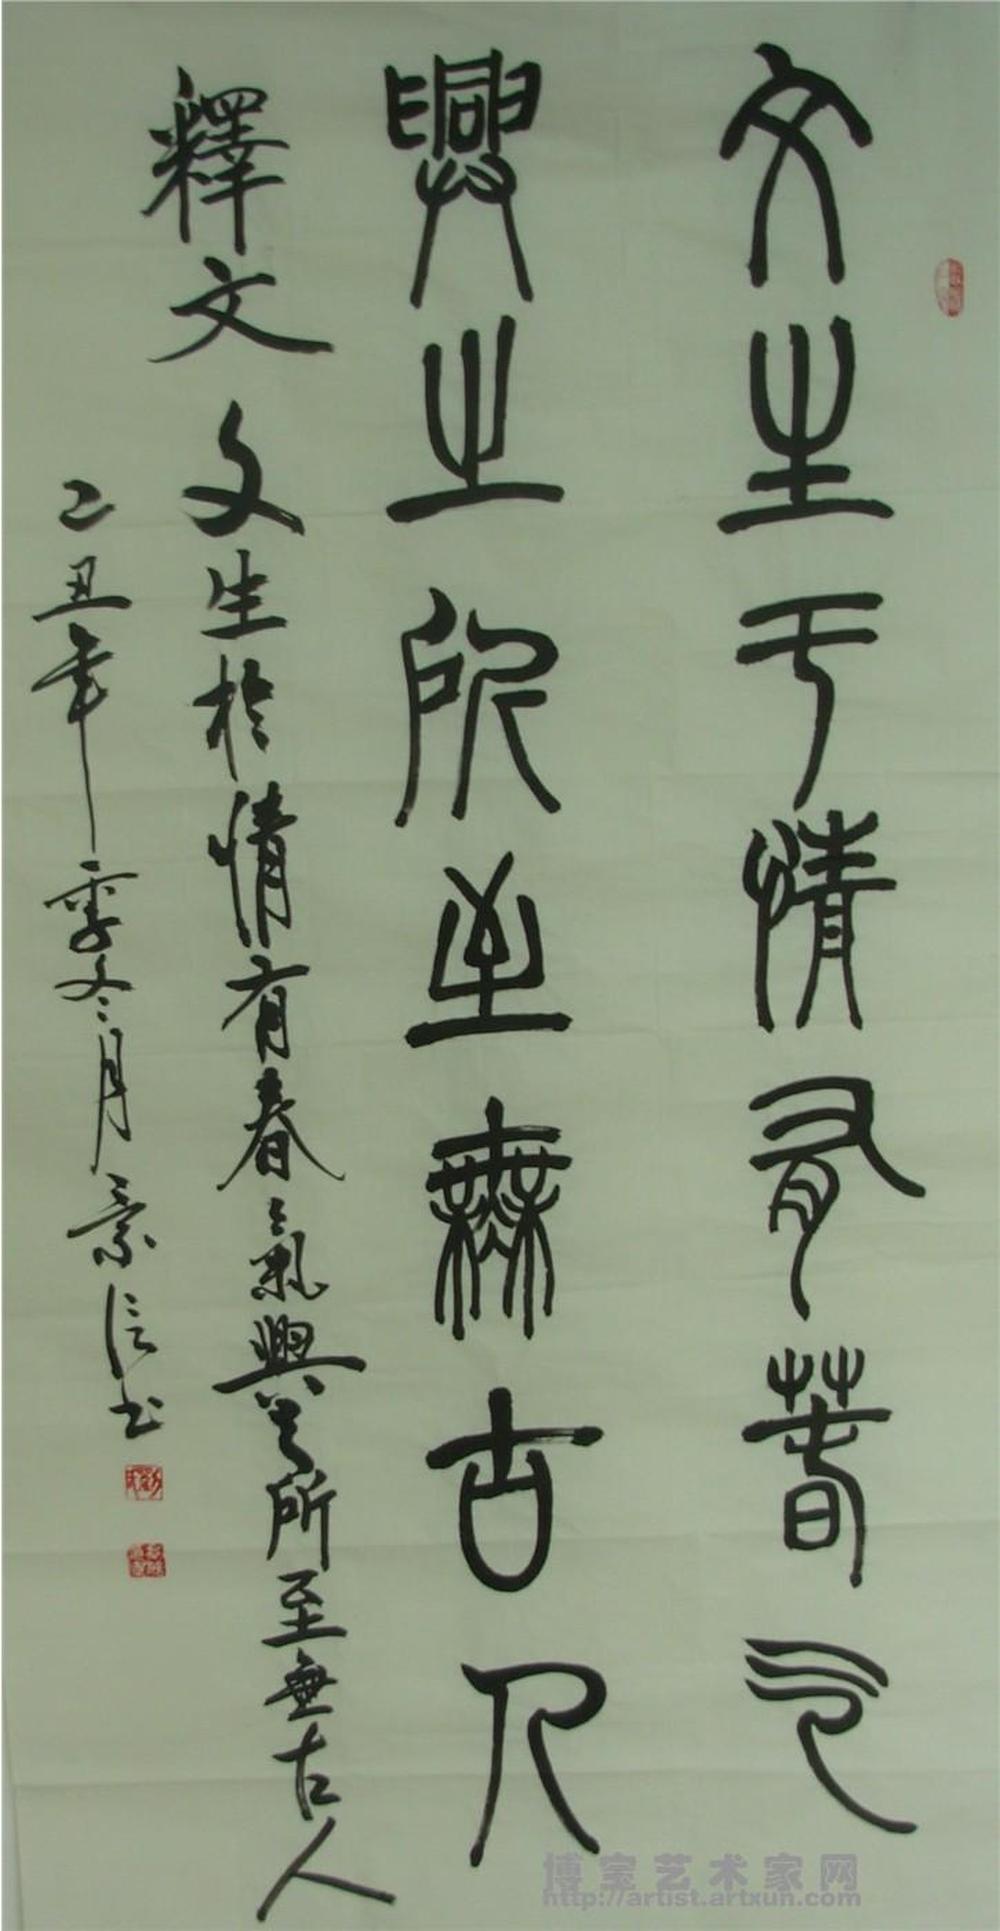 文生于情有春气
興之所至無古人
釋文 文生於情有春氣興之所至無古人
乙丑年季冬月景信书
博宝艺术家网
http://artist.artxun.com